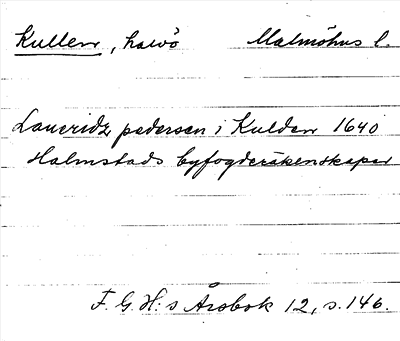 Kullen, halvö Malmöhus l.
Lauridz pedersen i Kulden 1640
Halmstads byfogderäkenskaper
F. G. H:s Årsbok 12, s. 146.